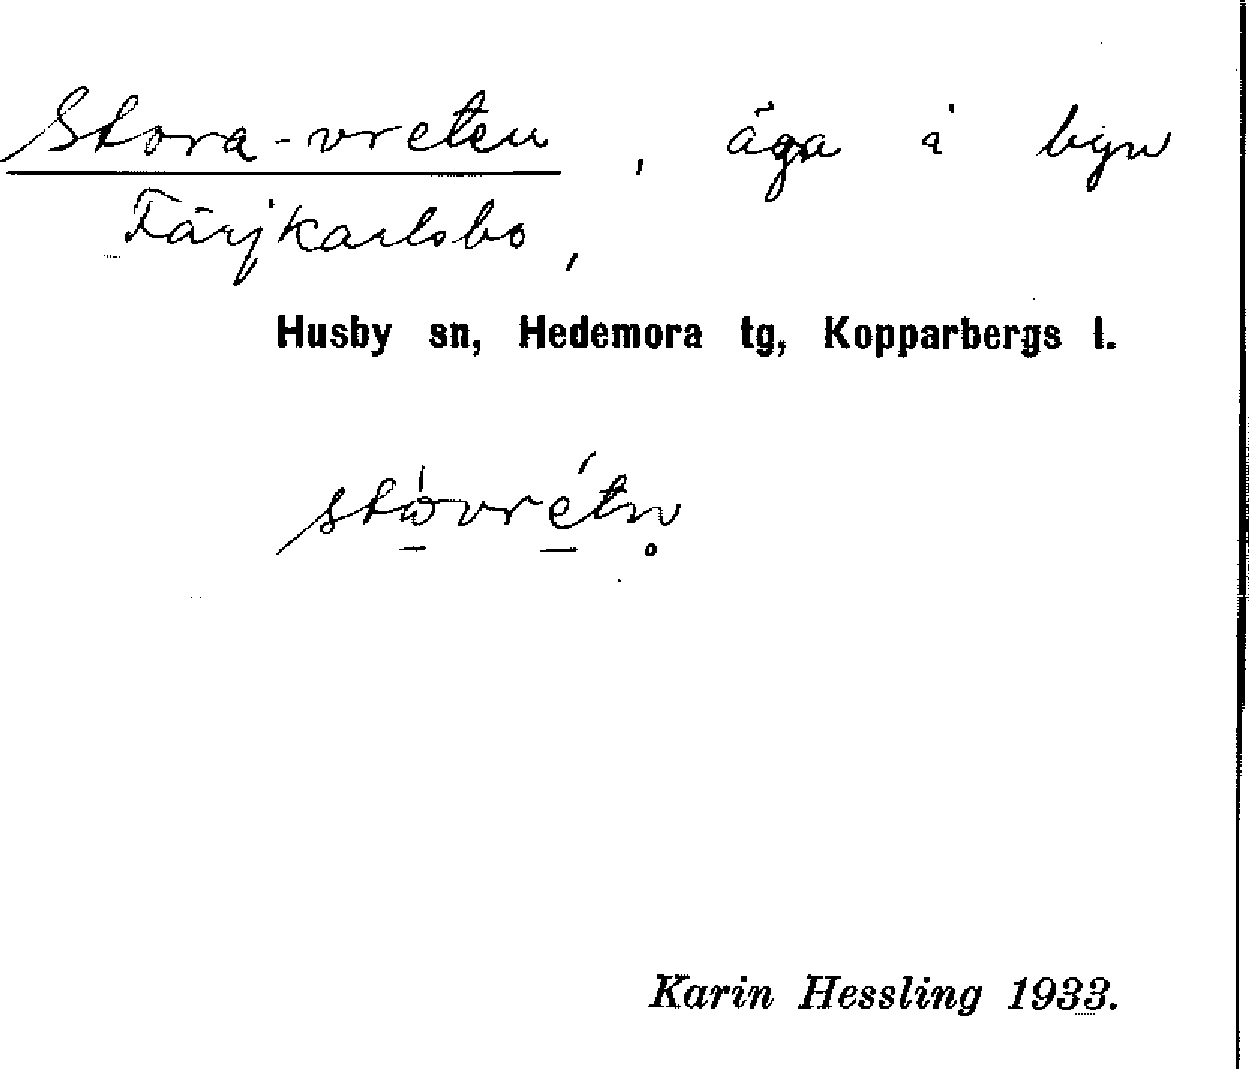 Stora-vreten, äga i byn
Färjkarlsbo,
Husby sn, Hedemora tg, Kopparbergs l.
stòvrétn̥
Karin Hessling 1933.